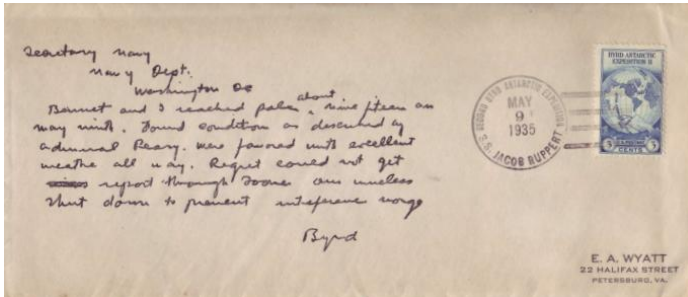 Secretary Navy
Navy Dept.
Washington DC
about
Bennet and I reached pole, nine fteen am
may ninth. Found condition as described by
admiral Peary. were favored with excellent
weathe all way. Regret could not get
report through sooner our wireless
shut down to prevent inteference norge
Byrd
SECOND BYRD ANTARCTIC EXPEDITION
MAY
9
1935
S.S. JACOB RUPPERT
BYRD ANTARCTIC
EXPEDITION II
3 CENTS 3
E. A. WYATT
22 HALIFAX STREET
PETERSBURG, VA.